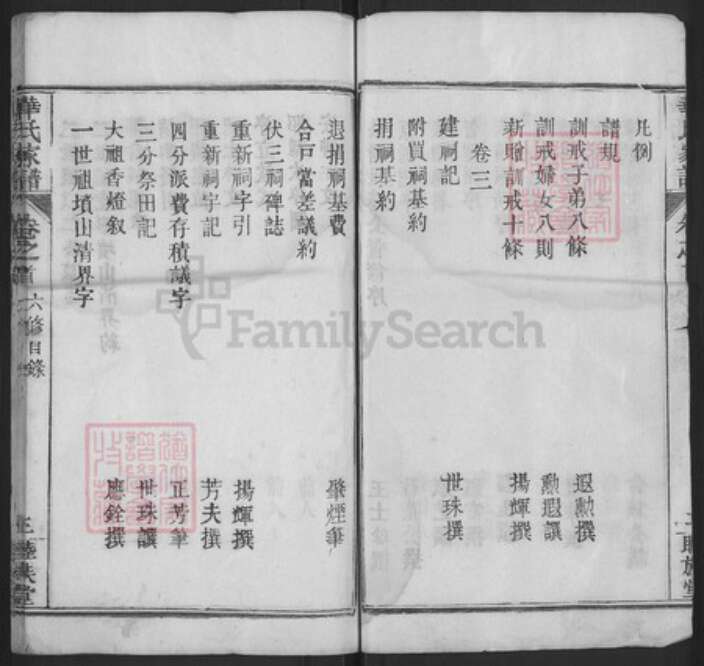 凡例
譜規
訓戒子弟八條 遐勲撰
訓戒婦女八則 勲瑕譔
新贈訓戒十條 揚輝撰
卷三
建祠記 世珠撰
附買祠基約
捐祠基約
退捐祠基費 肇煙筆
合戸當差議約
伏三祠碑誌
重新祠宇引 揚輝撰
重新祠宇記 芳夫撰
四分派費存積議字 正芳筆
三分祭田記 世珠譔
大祖香燈叙 應銓撰
一世祖墳山清界字
華氏家譜 卷之首 六修目錄
FamilySearch